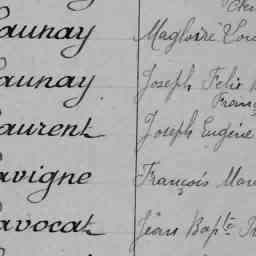 aunay Magloire
aunay Joseph Felix
aurent Joseph Eugène
avigne François
avocat Jean Bapte